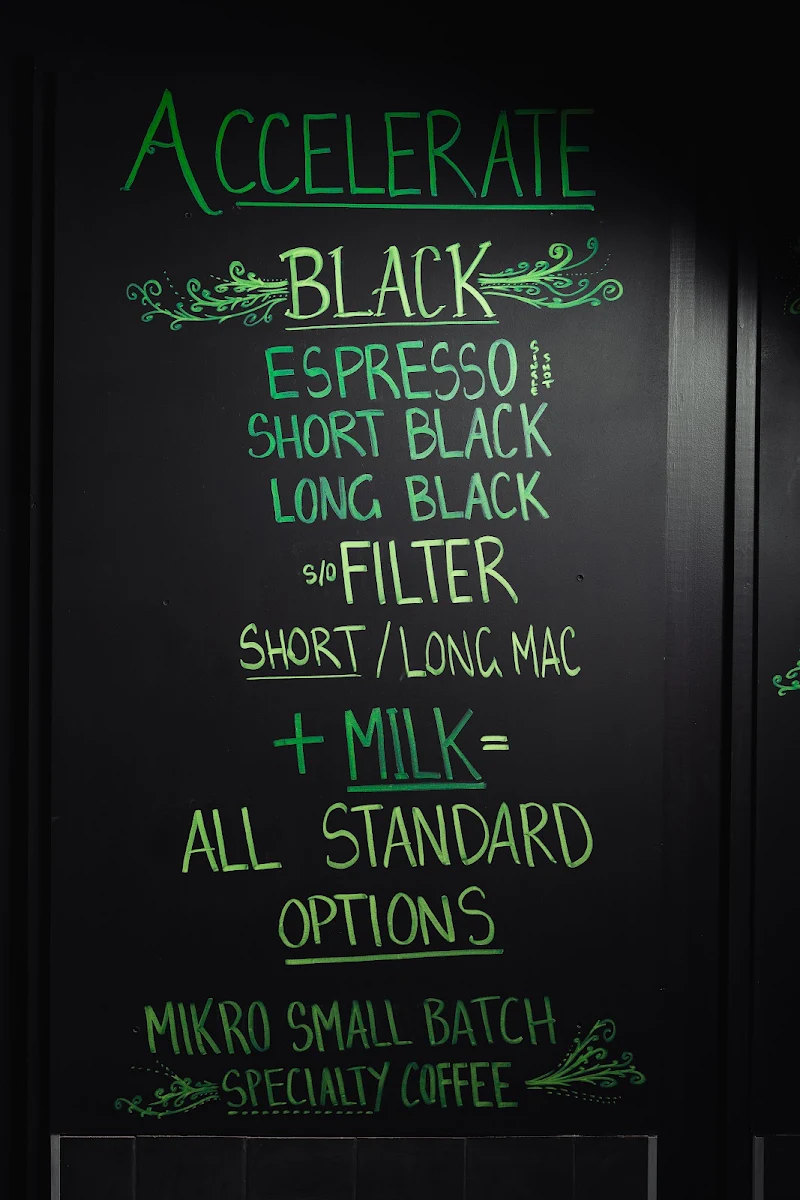 ACCELERATE
BLACK
ESPRESSO SINGLE SHOT
SHORT BLACK
LONG BLACK
S/O FILTER
SHORT / LONG MAC
+ MILK =
ALL STANDARD
OPTIONS
MIKRO SMALL BATCH
SPECIALTY COFFEE